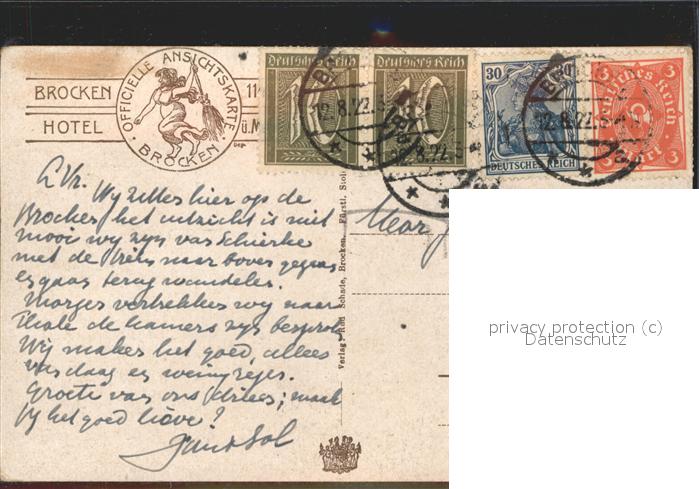 BROCKEN
HOTEL
OFFICIELLE ANSICHTSKARTE
BROCKEN
11
ü.M
Deutsches Reich
10
Deutsches Reich
10
30 30
DEUTSCHES REICH
3 Deutsches Reich 3
3 Mark 3
12.8.22.5
8.22.5
12.8.22.5
L Vr.
Wy zitten hier op de
Brocken het uitzicht is niet
mooi wy zyn van Schierke
met de trein naar boven gegaan
en gaan terug wandelen.
Morgen vertrekken wy naar
Thale de kamers zyn besproken
Wy maken het goed, alleen
vandaag en weinig regen.
Groeten van ons drieën; maak
jy het goed lieve?
Verlag: Rud Schade, Brocken. Fürstl. Stolb
privacy protection (c)
Datenschutz